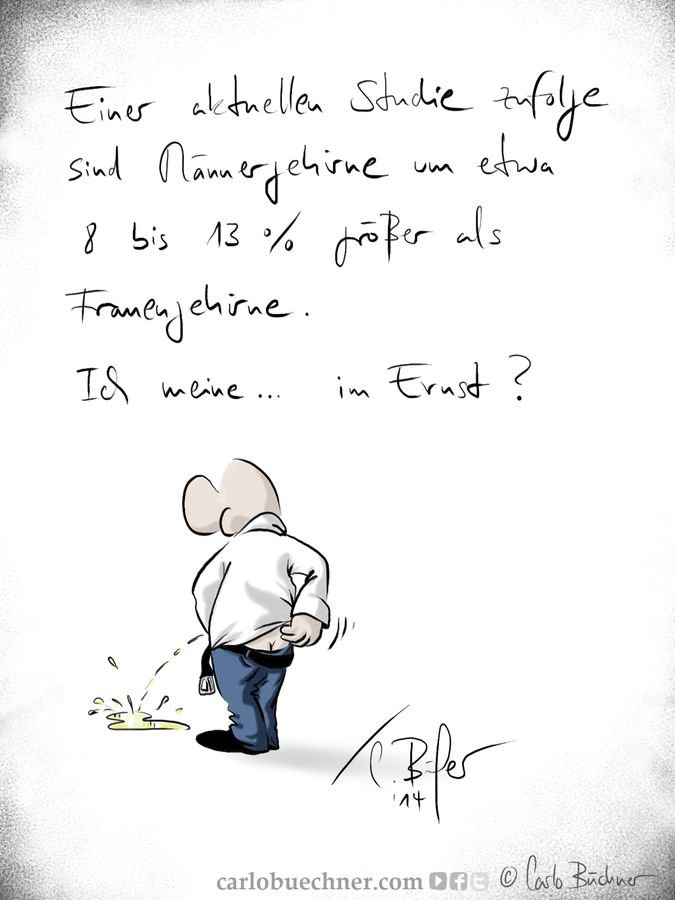 Einer aktuellen Studie zufolge
sind Männergehirne um etwa
8 bis 13 % größer als
Frauengehirne.
Ich meine... im Ernst?
'14
carlobuechner.com
© Carlo Büchner